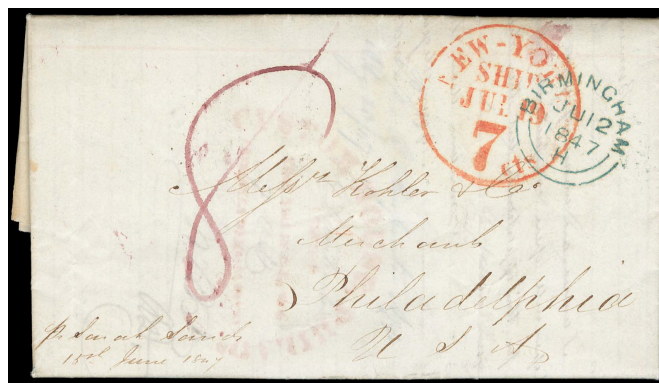 8
NEW-YORK
SHIP
JUL 19
7
cts
BIRMINGHAM
JU12
1847
H
Messrs Kohler & Co.
Merchants
Philadelphia
U S A
pr Sarah Sands
15th June 1847